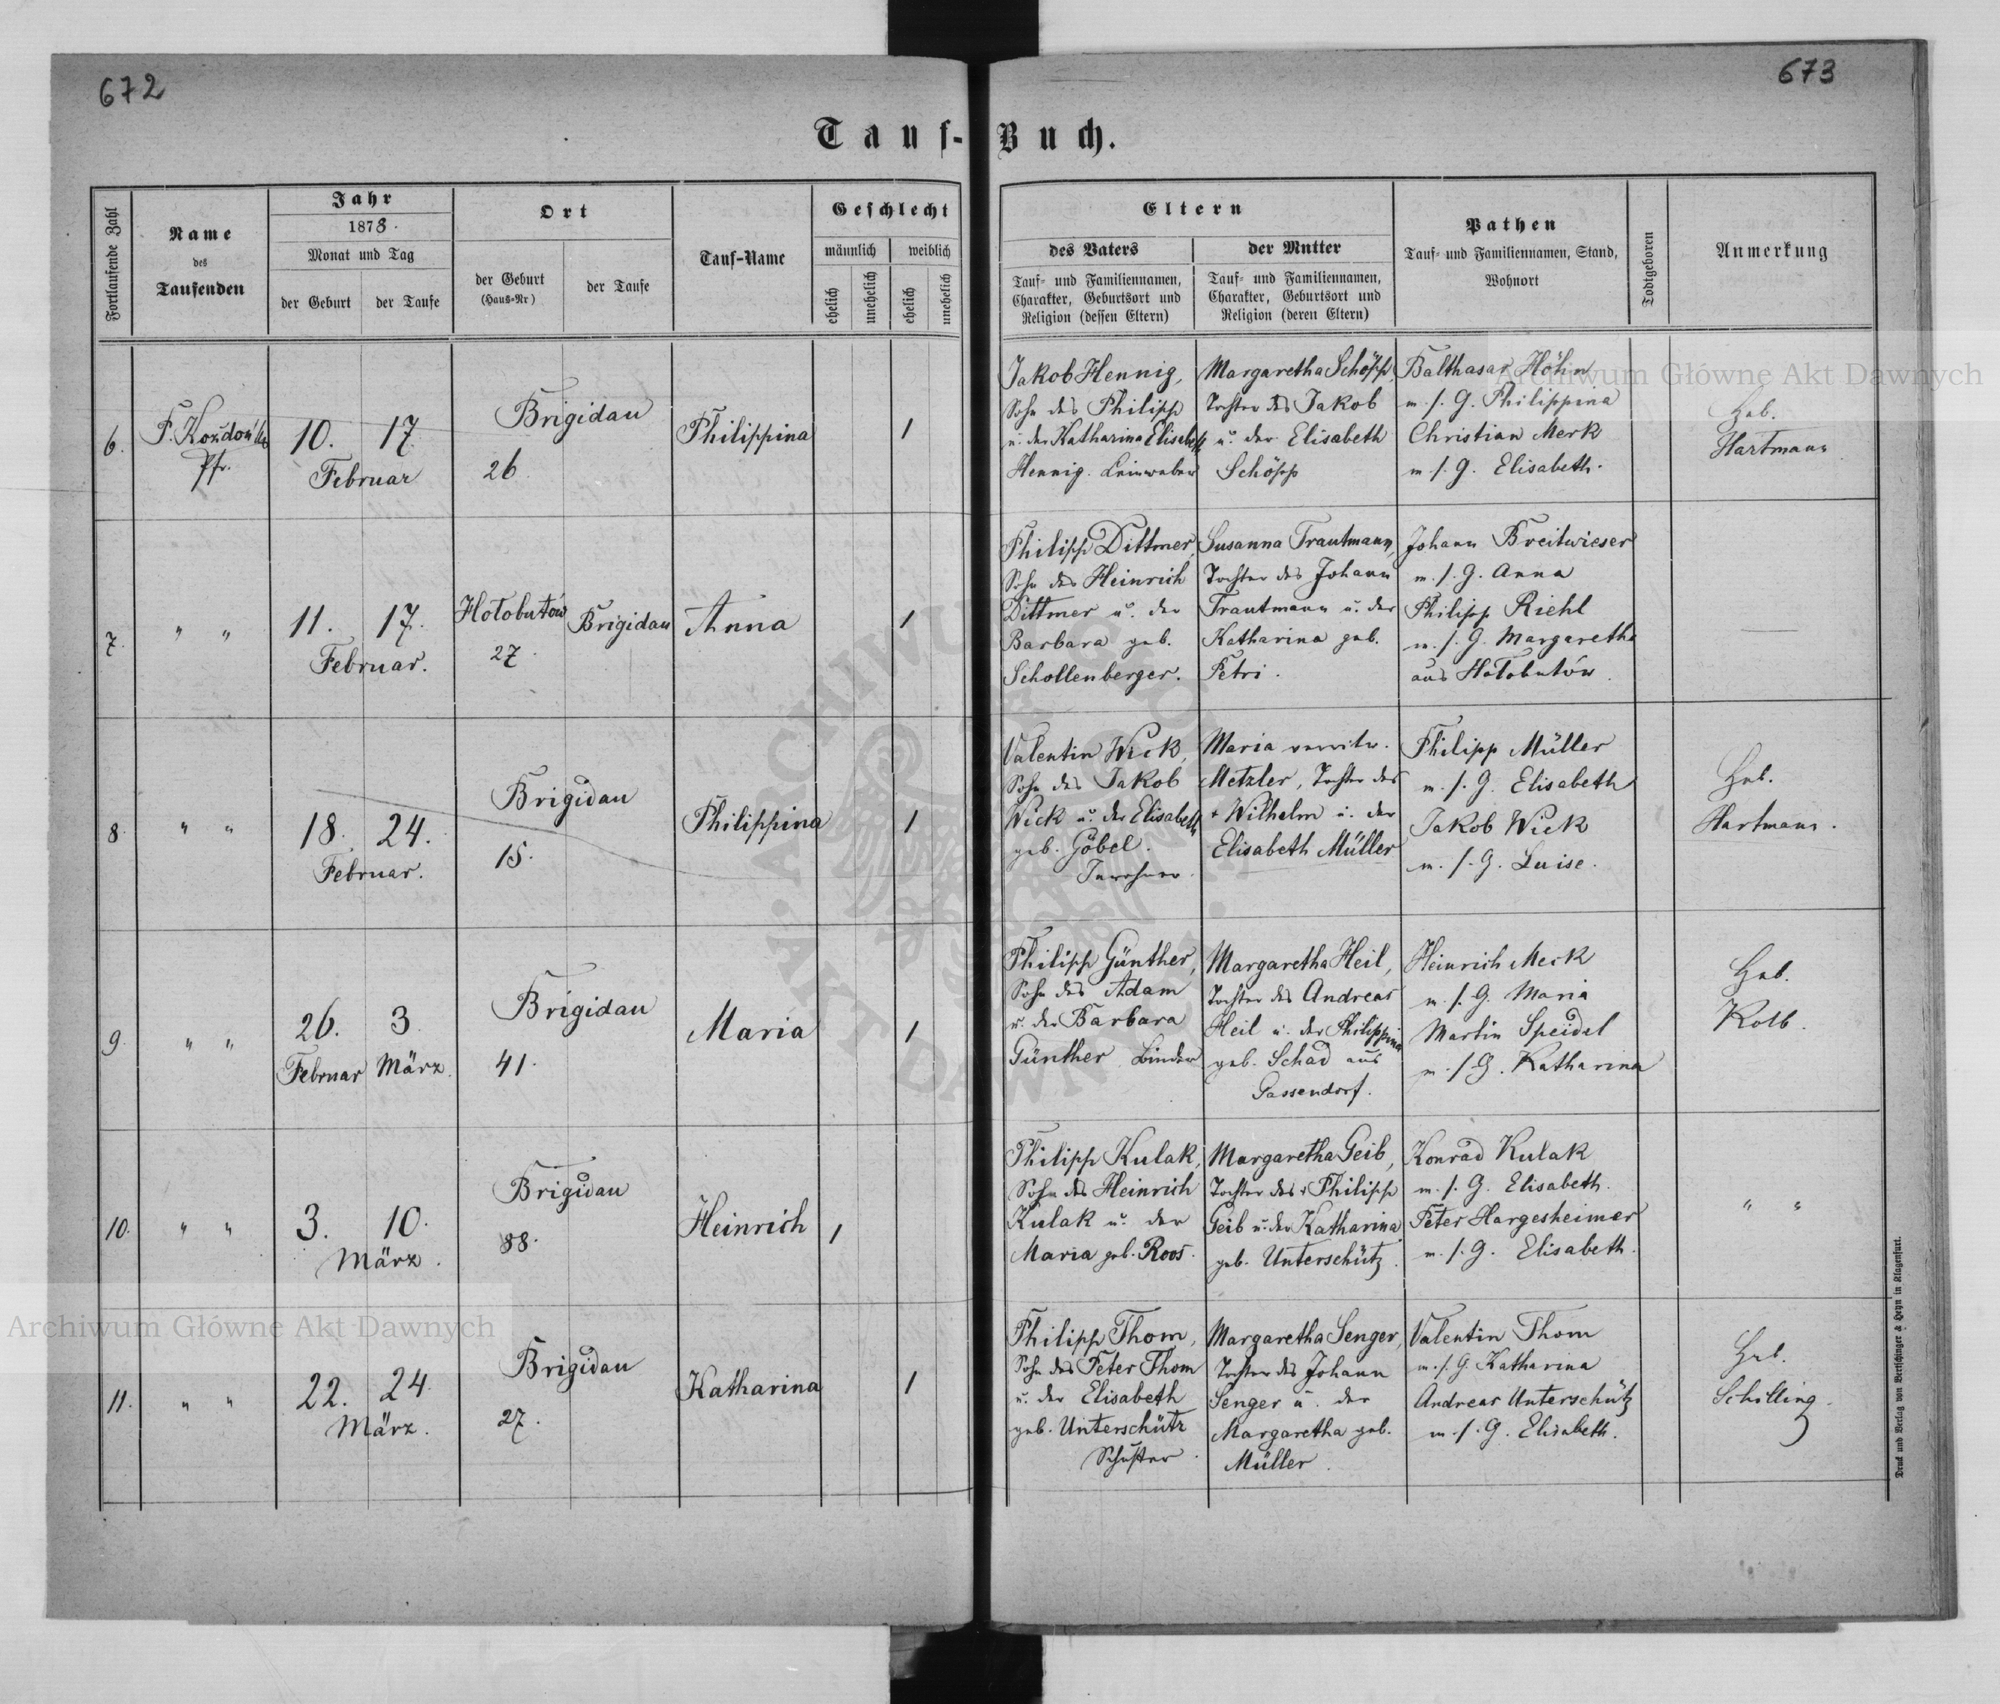 672
673
Tauf-Buch.
Fortlaufende Zahl
Name
des
Taufenden
Jahr
1878.
Monat und Tag
der Geburt
der Taufe
Ort
der Geburt
(Haus-Nr)
der Taufe
Tauf-Name
Geschlecht
männlich
weiblich
ehelich
unehelich
ehelich
unehelich
Eltern
des Vaters
Tauf- und Familiennamen,
Charakter, Geburtsort und
Religion (dessen Eltern)
der Mutter
Tauf- und Familiennamen,
Charakter, Geburtsort und
Religion (deren Eltern)
Pathen
Tauf- und Familiennamen, Stand,
Wohnort
Todtgeboren
Anmerkung
6.
Pfr.
10. 17.
Februar
Brigidau
26
Philippina
1
Jakob Hennig,
Sohn des Philipp
u. der Katharina Elisabeth
Hennig. Leinweber
Margaretha Schöpp,
Tochter des Jakob
u. der Elisabeth
Schöpp
Balthasar Höhn
m. s. G. Philippina
Christian Merk
m. s. G. Elisabeth.
Heb.
Hartmann
7.
" "
11. 17.
Februar.
Hołobutów
27.
Brigidau
Anna
1
Philipp Dittmer,
Sohn des Heinrich
Dittmer u. der
Barbara geb.
Schollenberger.
Susanna Trautmann,
Tochter des Johann
Trautmann u. der
Katharina geb.
Petri.
Johann Breitwieser
m. s. G. Anna
Philipp Riehl
m. s. G. Margaretha
aus Hołobutów.
—
8.
" "
18. 24.
Februar.
Brigidau
15.
Philippina
1
Valentin Wick,
Sohn des Jakob
Wick u. der Elisabeth
geb. Göbel.
Inwohner.
Maria verwitw.
Metzler, Tochter des
+ Wilhelm u. der
Elisabeth Müller
Philipp Müller
m. s. G. Elisabeth
Jakob Wick
m. s. G. Luise.
Heb.
Hartmann.
9.
" "
26. 3.
Februar März.
Brigidau
41.
Maria
1
Philipp Günther,
Sohn des Adam
u. der Barbara
Günther Binder
Margaretha Heil,
Tochter des Andreas
Heil u. der Philippina
geb. Schad aus
Gassendorf.
Heinrich Merk
m. s. G. Maria
Martin Speidel
m. s. G. Katharina
Heb.
Kolb.
10.
" "
3. 10.
März.
Brigidau
88.
Heinrich
1
Philipp Kulak,
Sohn des Heinrich
Kulak u. der
Maria geb. Roos.
Margaretha Geib,
Tochter des + Philipp
Geib u. der Katharina
geb. Unterschütz.
Konrad Kulak
m. s. G. Elisabeth.
Peter Hargesheimer
m. s. G. Elisabeth.
" "
11.
" "
22. 24.
März.
Brigidau
27.
Katharina
1
Philipp Thom,
Sohn des Peter Thom
u. der Elisabeth
geb. Unterschütz
Schuster.
Margaretha Senger,
Tochter des Johann
Senger u. der
Margaretha geb.
Müller.
Valentin Thom
m. s. G. Katharina
Andreas Unterschütz
m. s. G. Elisabeth.
Heb.
Schilling.
Druck und Verlag von Bertschinger & Heyn in Klagenfurt.
Archiwum Główne Akt Dawnych
Archiwum Główne Akt Dawnych